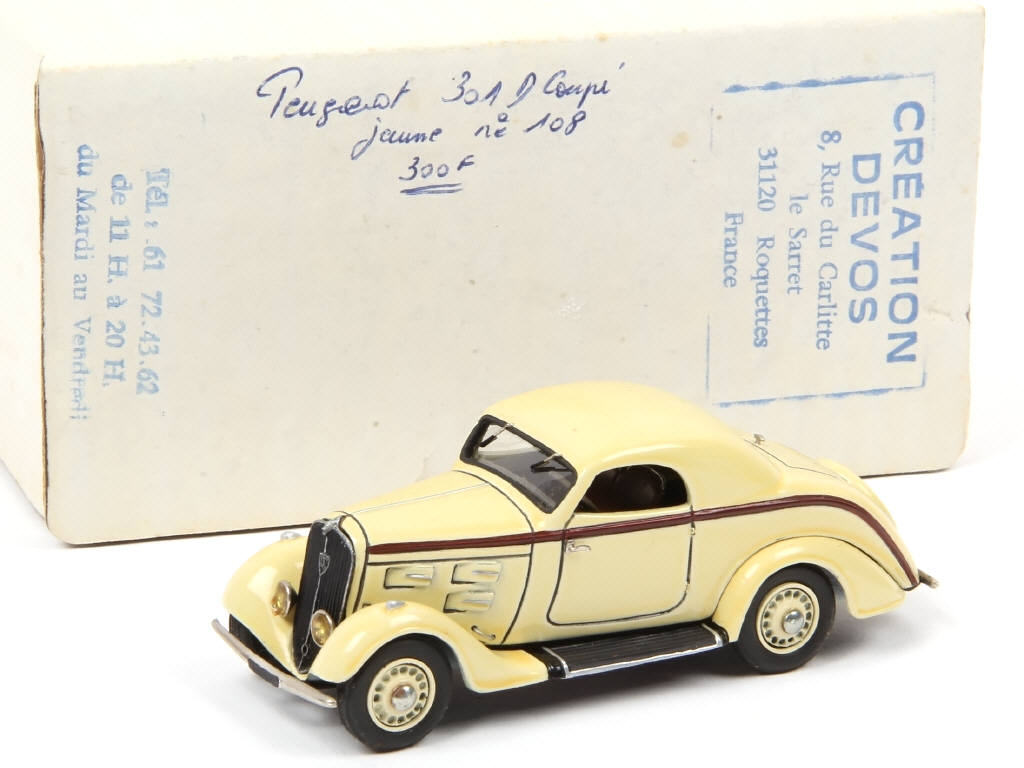 Peugeot 301 D Coupé
jaune nº 108
300F
CRÉATION
DEVOS
8, Rue du Carlitte
le Sarret
31120 Roquettes
France
Tél : 61 72.43.62
de 11 H. à 20 H.
du Mardi au Vendredi